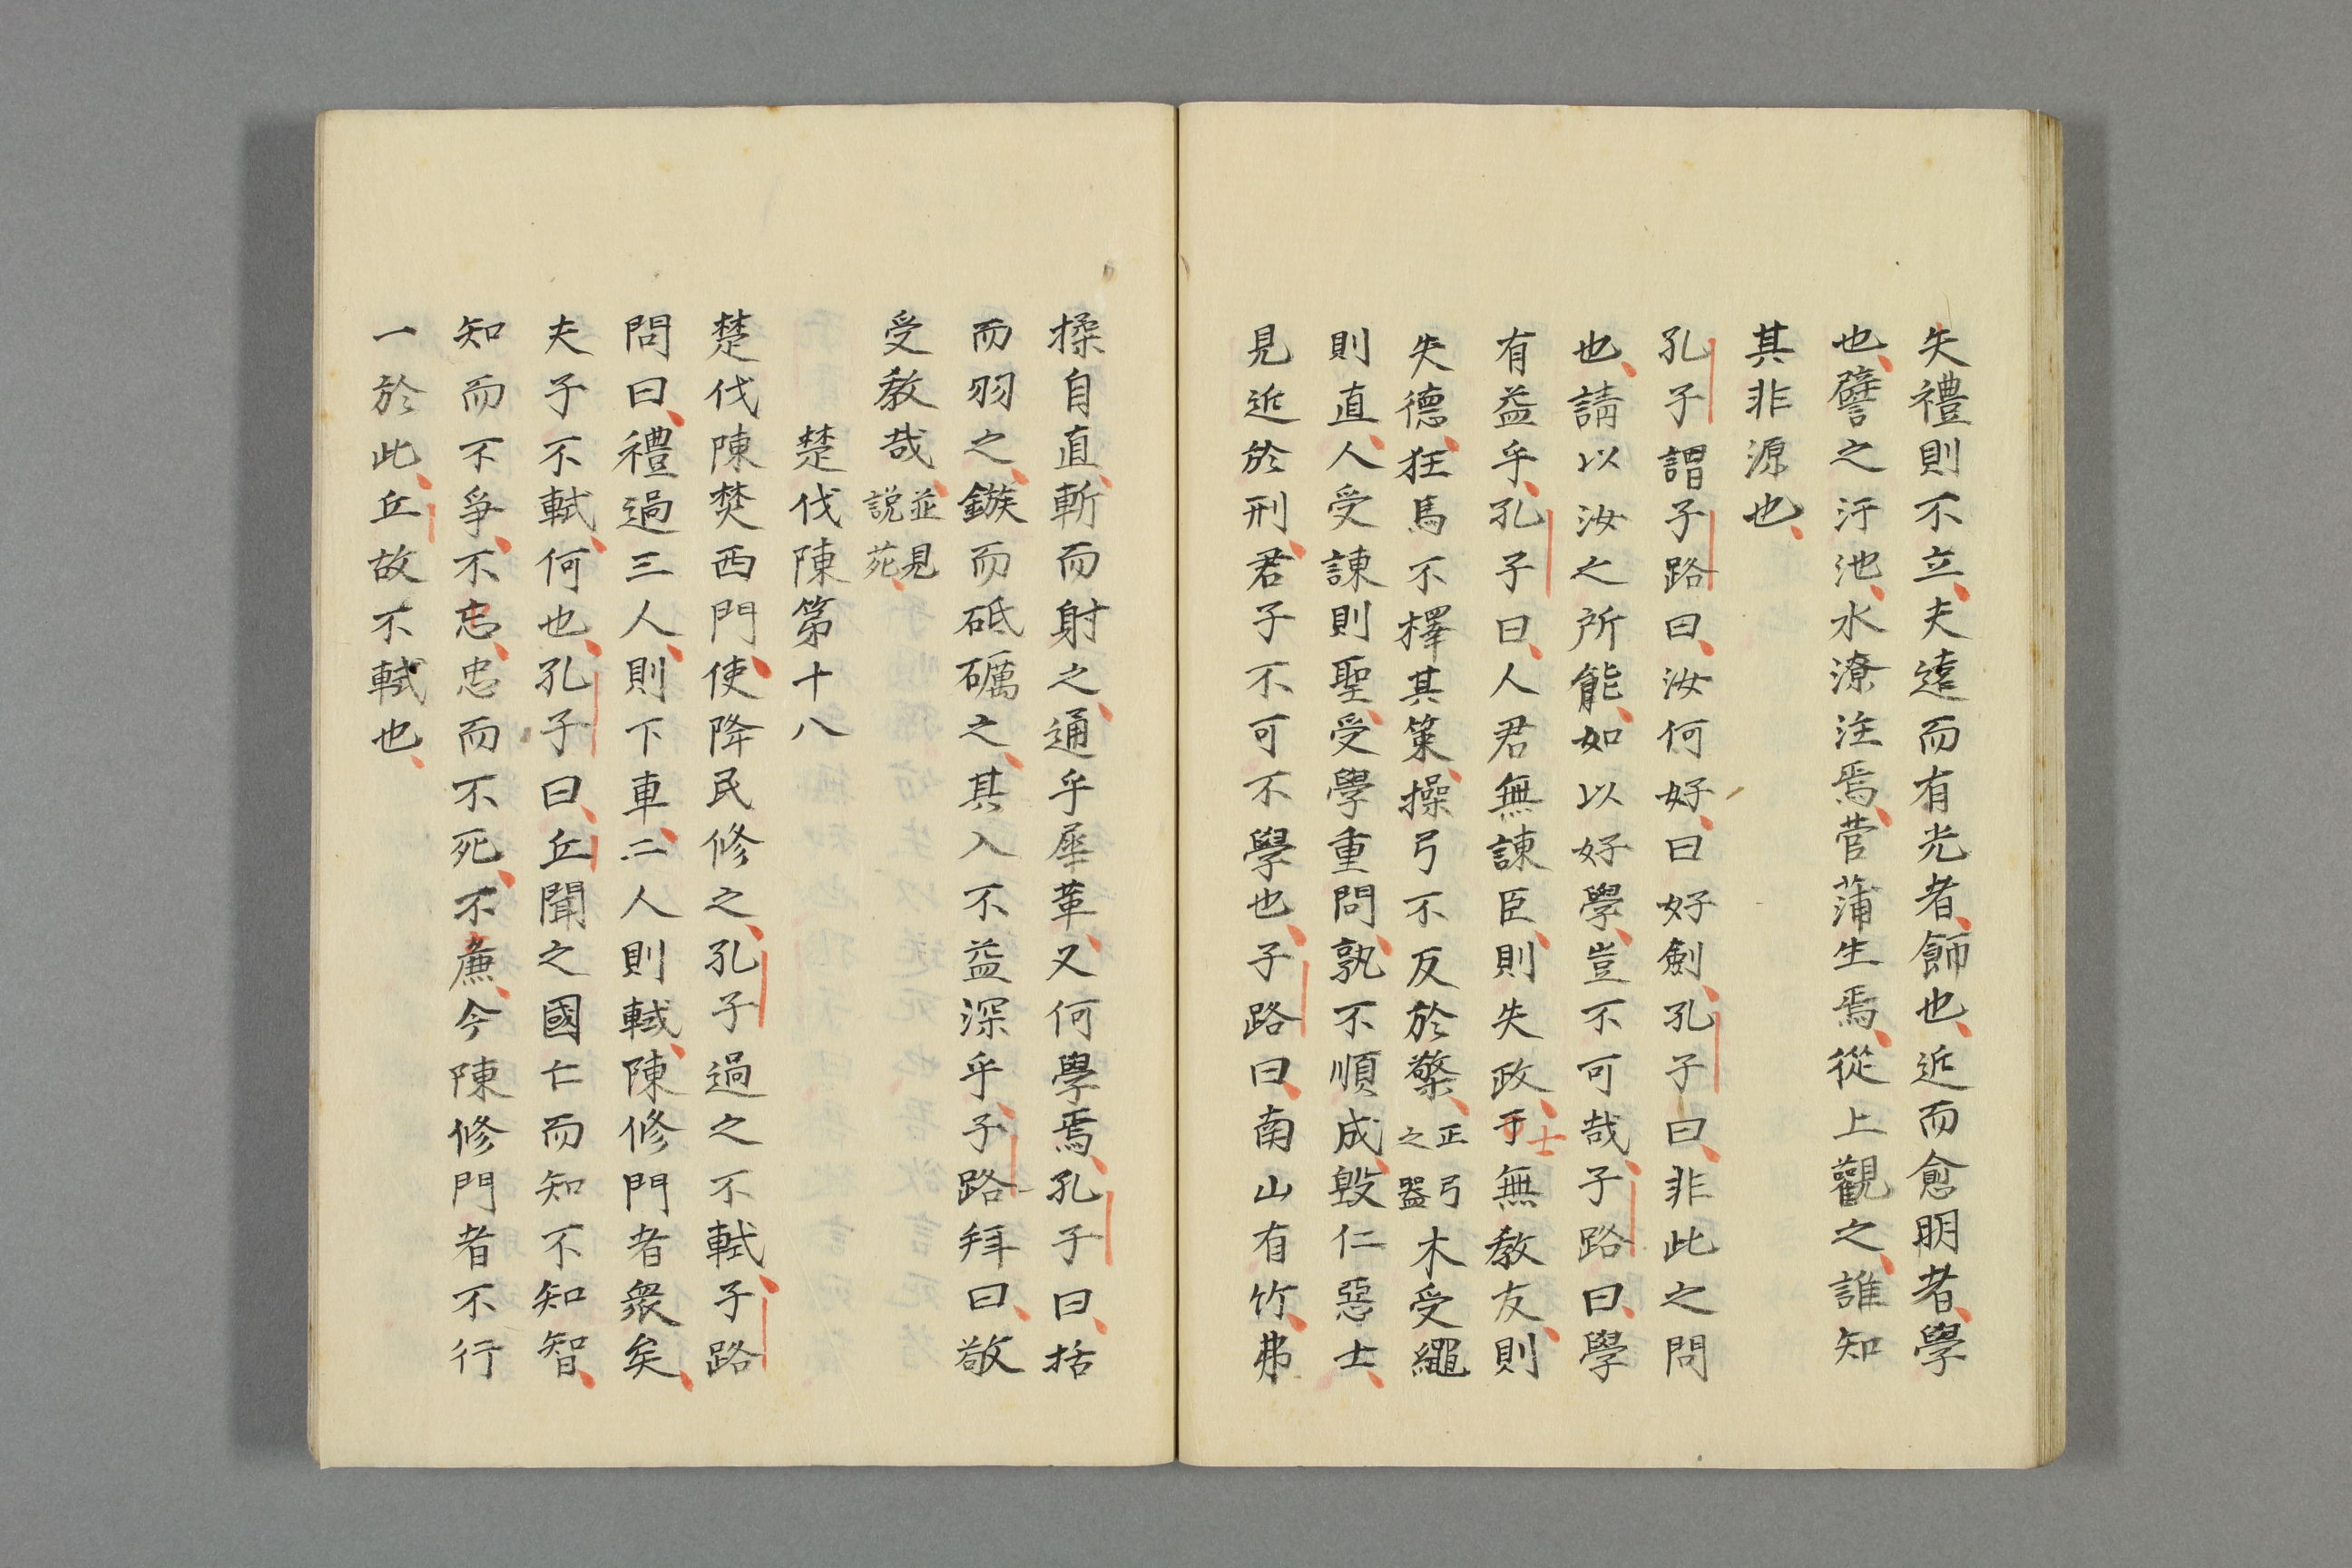 矢禮則不立、夫遠而有光者、飾也、近而愈明者、學
也、譬之汙池、水潦注焉、菅蒲生焉、從上觀之、誰知
其非源也、
孔子謂子路曰、汝何好、曰好劍、孔子曰、非此之問
也、請以汝之所能、如以好學、豈不可哉、子路曰、學
有益乎、孔子曰、人君無諫臣、則失政、士于無教友、則
失德、狂馬不擇其策、操弓不反於檠、正弓之器木受繩
則直、人受諫則聖、受學重問、孰不順成、毀仁惡士、
見近於刑、君子不可不學也、子路曰、南山有竹、弗
揉自直、斬而射之、通乎犀革、又何學焉、孔子曰、括
而羽之、鏃而砥礪之、其入不益深乎、子路拜曰、敬
受教哉、並見說苑、
楚伐陳第十八
楚伐陳焚西門、使降民修之、孔子過之不軾、子路
問曰、禮過三人、則下車、二人則軾、陳修門者衆矣、
夫子不軾、何也、孔子曰、丘聞之國亡而知不知智、
知而不爭、不忠、忠而不死、不廉、今陳修門者不行
一於此、丘故不軾也、